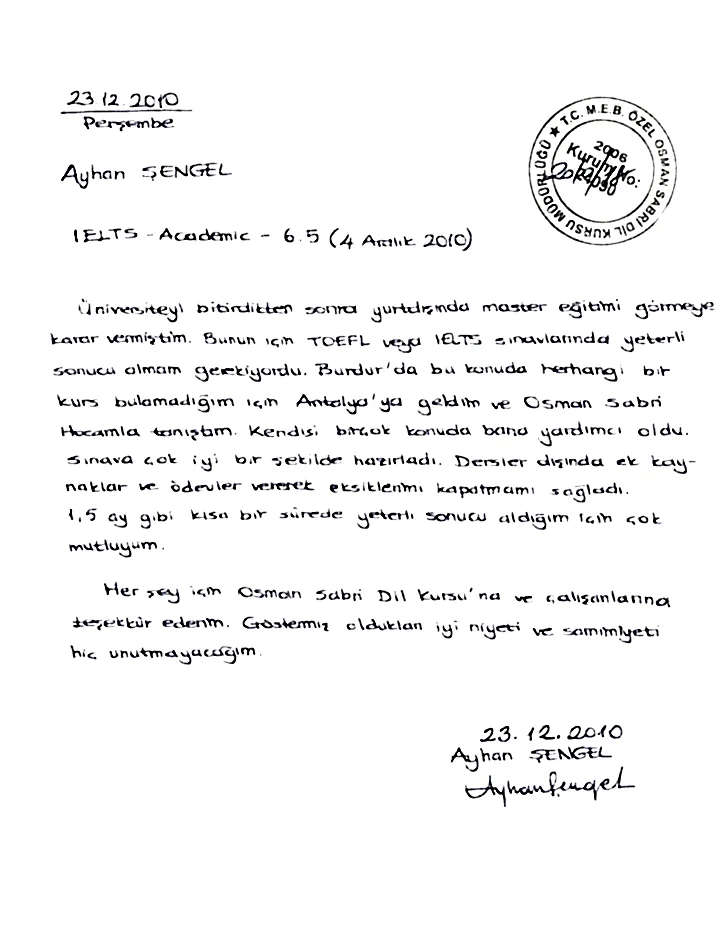 23.12.2010
Perşembe
T.C. M.E.B. ÖZEL OSMAN SABRİ DİL KURSU MÜDÜRLÜĞÜ ★
2006
Kurum No:
Ayhan ŞENGEL
IELTS - Academic - 6.5 (4 Aralık 2010)
Üniversiteyi bitirdikten sonra yurtdışında master eğitimi görmeye
karar vermiştim. Bunun için TOEFL veya IELTS sınavlarında yeterli
sonucu almam gerekiyordu. Burdur'da bu konuda herhangi bir
kurs bulamadığım için Antalya'ya geldim ve Osman Sabri
Hocamla tanıştım. Kendisi birçok konuda bana yardımcı oldu.
Sınava çok iyi bir şekilde hazırladı. Dersler dışında ek kay-
naklar ve ödevler vererek eksiklerimi kapatmamı sağladı.
1,5 ay gibi kısa bir sürede yeterli sonucu aldığım için çok
mutluyum.
Her şey için Osman Sabri Dil Kursu'na ve çalışanlarına
teşekkür ederim. Göstermiş oldukları iyi niyeti ve samimiyeti
hiç unutmayacağım.
23.12.2010
Ayhan ŞENGEL
Ayhan Şengel